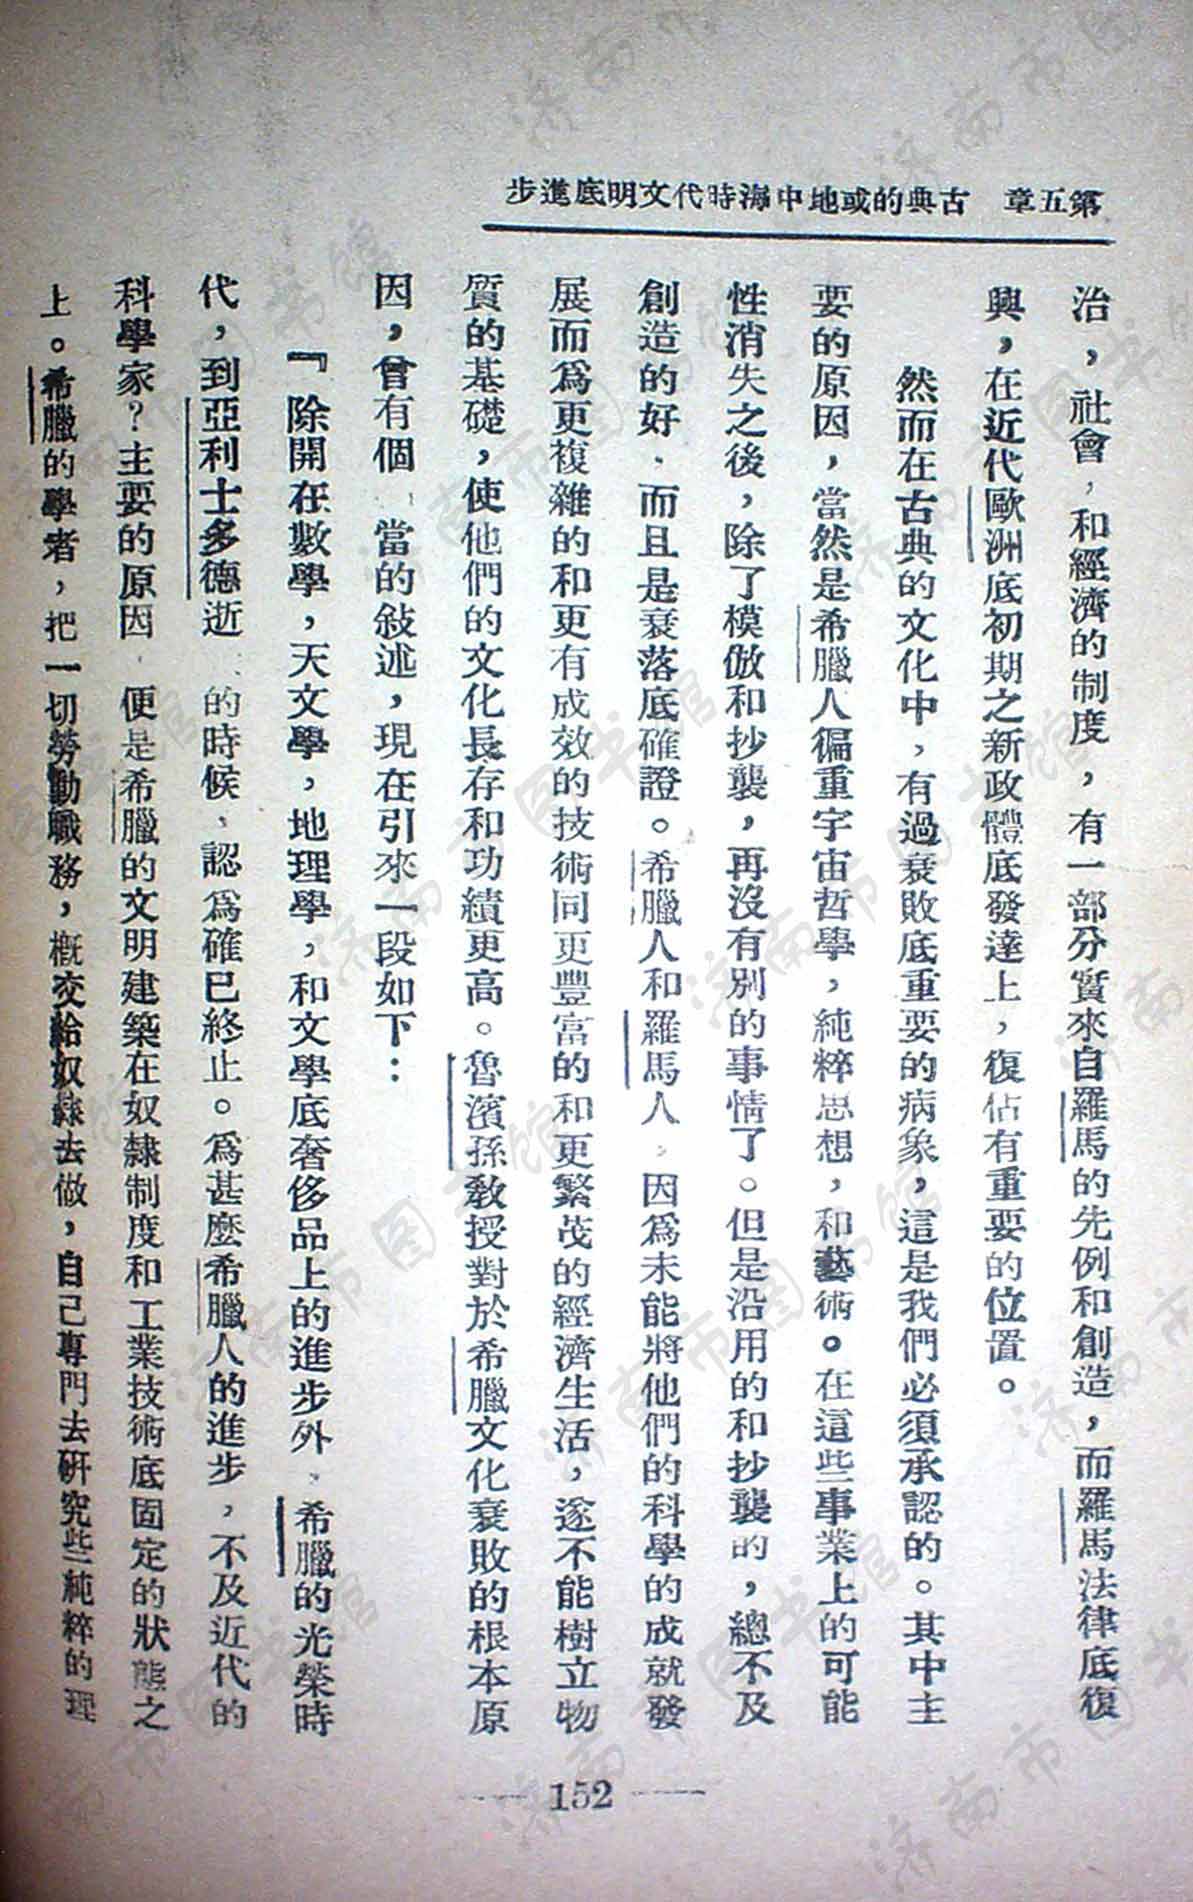 第五章　古典的或地中海時代文明底進步
治，社會，和經濟的制度，有一部分質來自羅馬的先例和創造，而羅馬法律底復
興，在近代歐洲底初期之新政體底發達上，復佔有重要的位置。
然而在古典的文化中，有過衰敗底重要的病象，這是我們必須承認的。其中主
要的原因，當然是希臘人偏重宇宙哲學，純粹思想，和藝術。在這些事業上的可能
性消失之後，除了模倣和抄襲，再沒有別的事情了。但是沿用的和抄襲的，總不及
創造的好，而且是衰落底確證。希臘人和羅馬人，因爲未能將他們的科學的成就發
展而爲更複雜的和更有成效的技術同更豐富的和更繁茂的經濟生活，遂不能樹立物
質的基礎，使他們的文化長存和功績更高。魯濱孫教授對於希臘文化衰敗的根本原
因，曾有個 當的敍述，現在引來一段如下：
『除開在數學，天文學，地理學，和文學底奢侈品上的進步外，希臘的光榮時
代，到亞利士多德逝 的時候，認爲確已終止。爲甚麼希臘人的進步，不及近代的
科學家？主要的原因，便是希臘的文明建築在奴隸制度和工業技術底固定的狀態之
上。希臘的學者，把一切勞動職務，概交給奴隸去做，自己專門去研究些純粹的理
152
济南市图书馆